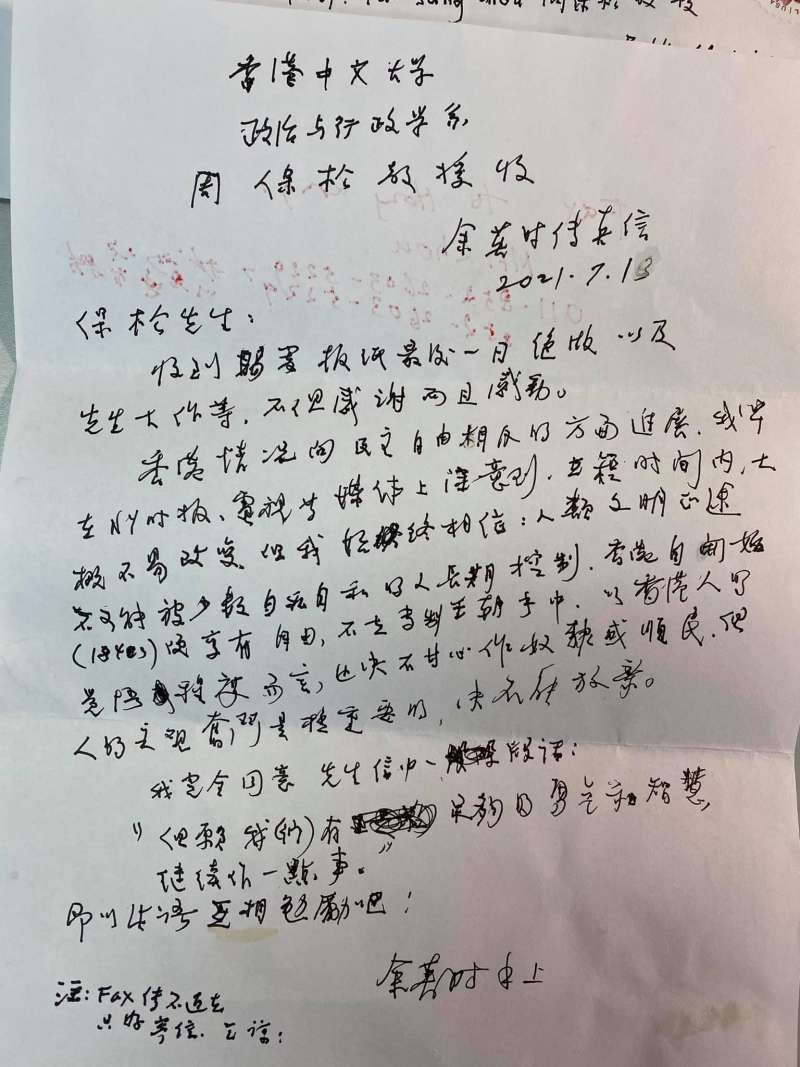 香港中文大学
政治与行政学系
周保松教授收
余英时传真信
2021.7.13
保松先生：
收到賜寄报纸最后一日绝版以及
先生大作等，不但感谢而且感动。
香港情况向民主自由相反的方面進展，我早
在NY时报、電视等媒体上注意到，在短时间内，大
概不易改变。但我始终相信：人類文明正途
不可能被少数自私自利的人長期控制，香港自開始
(1840s)便享有自由，不在专制王朝手中，以香港人的
觉悟程度而言，也决不甘心作奴隸或顺民，但
人的主观奮鬥是極重要的，决不能放棄。
我完全同意先生信中一段话：
"但願我(们)有足夠的勇气和智慧，
继续作一點事。"
即以此语互相勉勵吧！
余英时手上
注：Fax传不过去
只好寄信，乞諒：